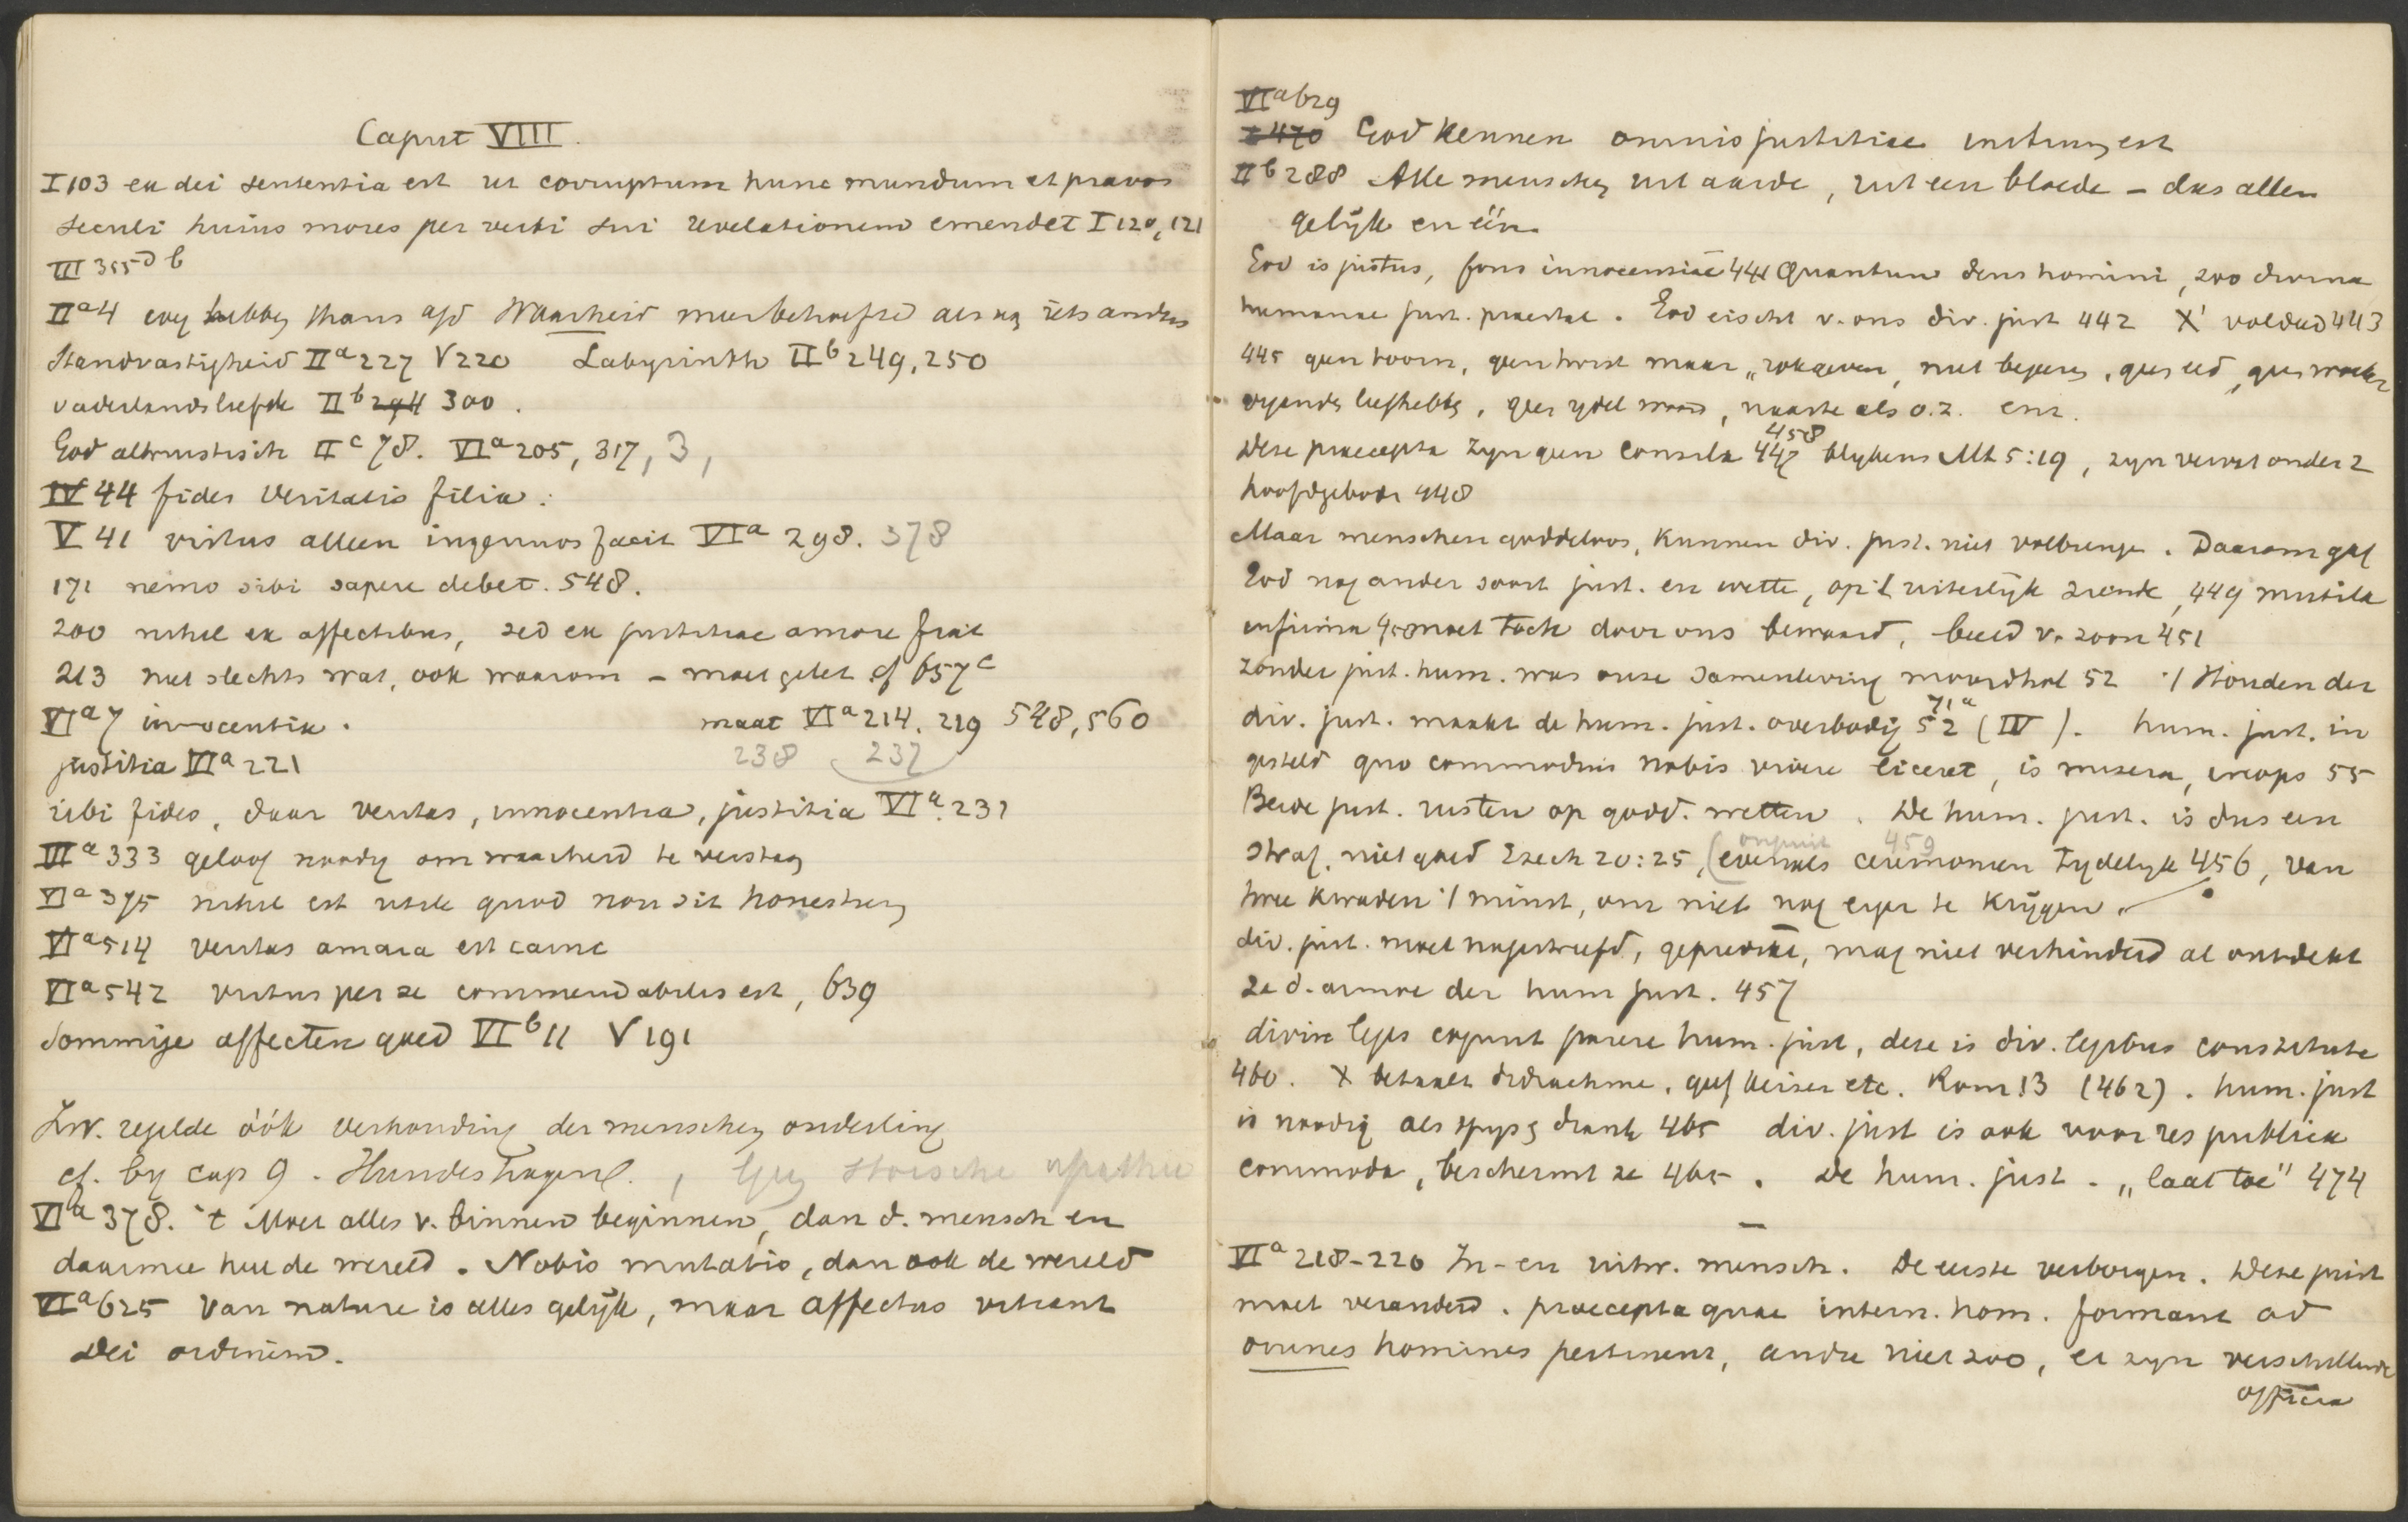 Caput VIII.
I 103 ea dei sententia est ut corruptum hunc mundum et pravos
seculi huius mores per verbi sui revelationem emendet I 120, 121
III 355 D b
II a 4 wy hebben thans aſd Waarheid meer behoefte als aan iets anders
Standvastigheid II a 227 V 220 Labyrinth II b 249, 250
vaderlandsliefde II b 294 300.
God altruistisch II c 78. VI a 205, 317, 3,
IV 44 fides veritatis filia.
V 41 virtus alleen ingenuos facit VI a 298. 378
171 nemo sibi sapere debet. 548.
200 nihil ex affectibus, sed ex justitiae amore fiat
213 niet slechts wat, ook waarom - moet gelet cf 657 c
VI a 7 innocentia. maat VI a 214. 219 548, 560
238 237
justitia VI a 221
ubi fides, daar veritas, innocentia, justitia VI a. 231
VI a 333 geloof noodig om waarheid te verstaan
VI a 375 nihil est utile quod non sit honestum
VI a 514 veritas amara est carne
VI a 542 virtus per se commendabilis est, 639
Sommige affecten goed VI b 11 V 191
Zw. regelde óók verhouding der menschen onderling
cf. by cap 9. Hundeshagen. , tegen stoische apathie
VI a 378. 't Moet alles v. binnen beginnen, dan d. mensch en
daarmee heel de wereld. Nobis mutatis, dan ook de wereld
VI a 625 van nature is alles gelijk, maar affectus vitiant
Dei ordinem.
VI a 629
I 470 God kennen omnis justitiae instrum est
II b 288 Alle menschen uit aarde, uit een bloede - dus allen
gelijk en één.
God is justus, fons innocentiae 441 Quantum deus homini, zoo divina
humanae just. praestat. God eischt v. ons div. just 442 X voldeed 443
445 geen toorn, geen twist maar „rokgeven, niet begeren, geen eed, geen woeker
vyanden liefhebben, geen ydel woord, naaste als o.z. enz.
458
Deze praecepta zyn geen consilia 447 blykens Mt 5:19, zyn vervat onder 2
hoofdgeboden 448
Maar menschen goddeloos, kunnen div. just. niet volbrengen. Daarom gaf
God nog ander soort just. en wette, op 't uiterlijk ziende, 449 mutila
infirma 450 moet toch door ons bewaard, beeld v. zoon 451
zonder just. hum. was onze samenleving moordhol 52 't Houden der
71 a
div. just. maakt de hum. just. overbodig 52 (IV). hum. just. in
gesteld quo commodius nobis vivere liceret, is misera, inops 55
Beide just. rusten op godd. wetten. De hum. just. is dus een
onjuist 459
straf. niet goed Ezech 20:25, (evenals ceremonien tydelyk 456, van
twee kwaden 't minst, om niet nog erger te krijgen.
div. just. moet nagestreefd, gepredikt, mag niet verhinderd al ontdekt
ze d. armoe der hum just. 457
divin leges cogunt parere hum. just, deze is div. legibus constituta
460. X betaalt didrachme, gaf keizer etc. Rom 13 (462). hum. just
is noodig als spys en drank 465 div. just is ook voor res publica
commoda, beschermt ze 465. De hum. just. „laat toe" 474
—
VI a 218-220 In- en uitw. mensch. De eerste verborgen. Deze juist
moet veranderd. praecepta quae intern. hom. formant ad
omnes homines pertinent, andre niet zoo, er zyn verschillende
officia